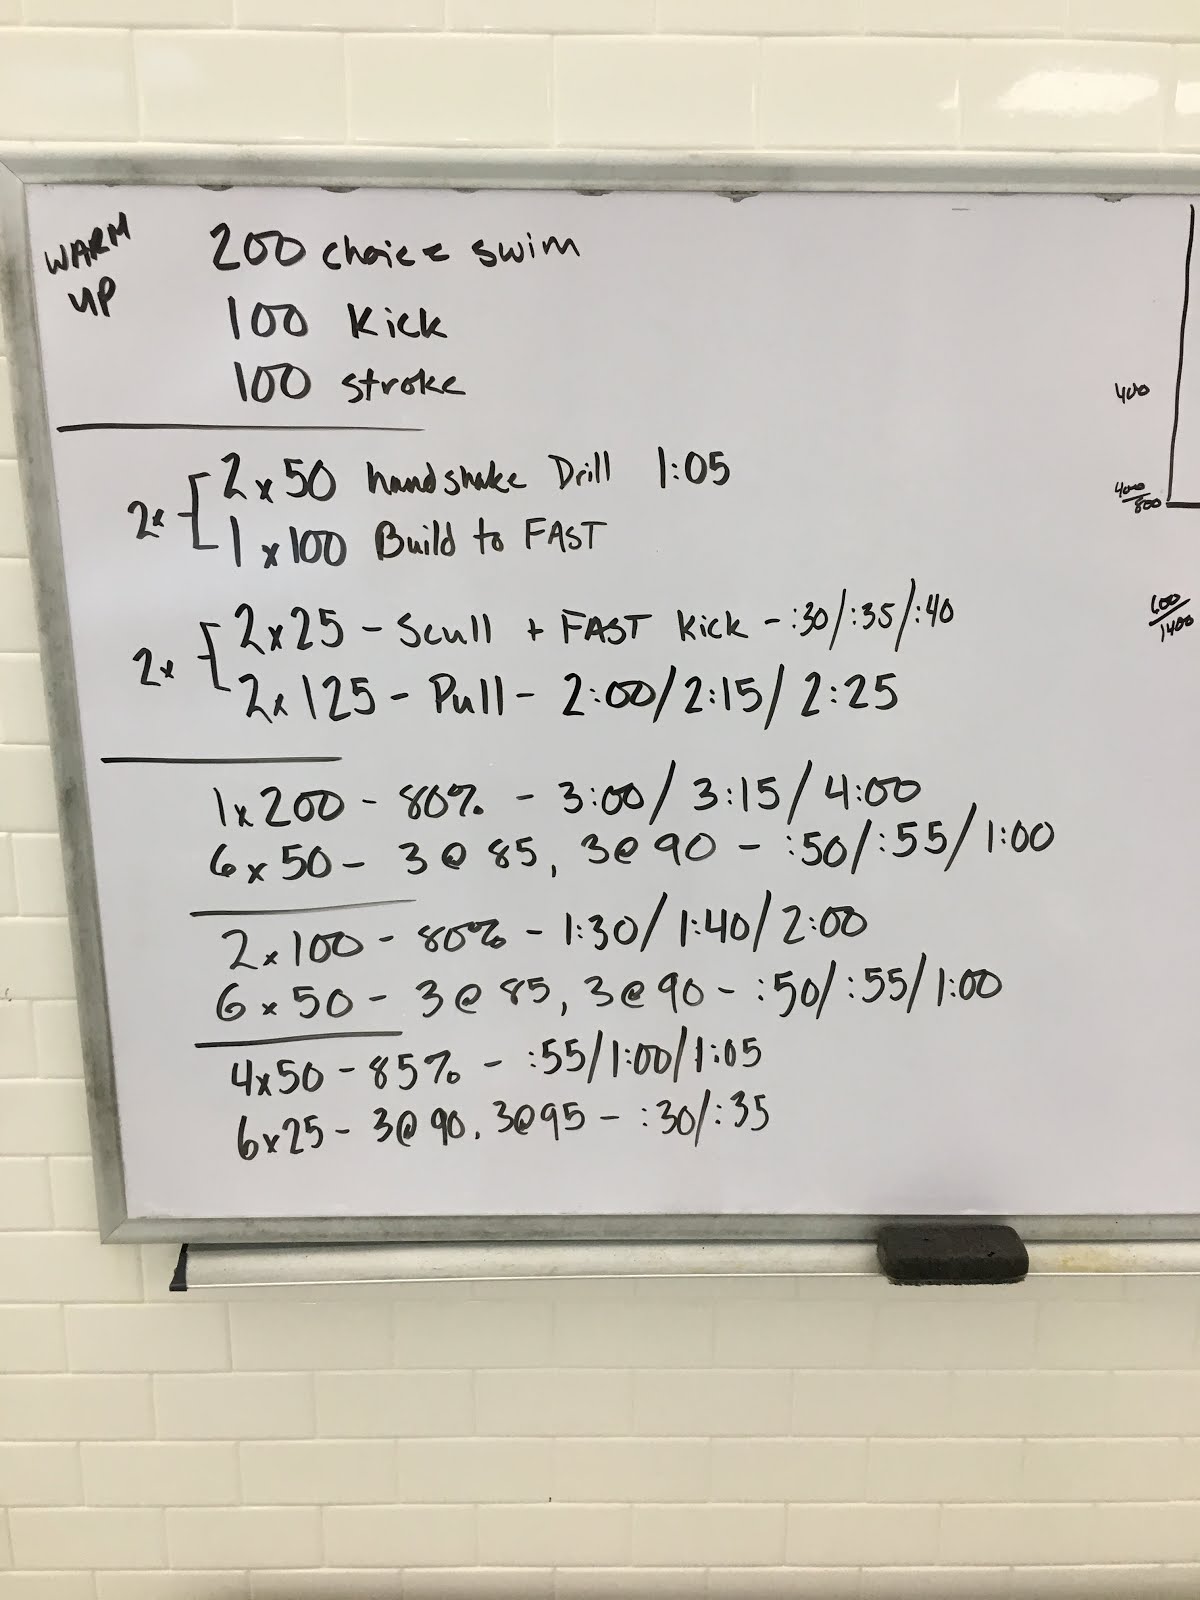 WARM UP
200 choice swim
100 Kick
100 stroke
2x
2x50 handshake Drill 1:05
1x100 Build to FAST
2x
2x25 - Scull + FAST Kick - :30/:35/:40
2x125 - Pull - 2:00/2:15/2:25
1x200 - 80% - 3:00/3:15/4:00
6x50 - 3@85, 3@90 - :50/:55/1:00
2x100 - 80% - 1:30/1:40/2:00
6x50 - 3@85, 3@90 - :50/:55/1:00
4x50 - 85% - :55/1:00/1:05
6x25 - 3@90, 3@95 - :30/:35
400
400/800
600/1400